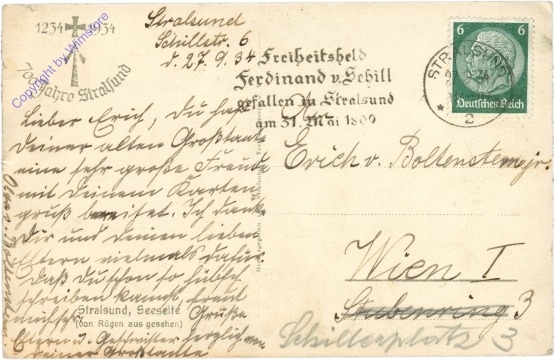 1234 1934
700 Jahre Stralsund
Stralsund
Schillstr. 6
d. 27.9.34
Freiheitsheld
Ferdinand v. Schill
gefallen in Stralsund
am 31. Mai 1809
6 6
Deutsches Reich
STRALSUND
2
Copyright by Wimstore
Lieber Erich, Du hast
Deiner alten Großtante
eine sehr große Freude
mit Deinem Karten-
gruß bereitet. Ich danke
Dir und Deinen lieben
Eltern vielmals dafür.
Daß Du schon so hübsch
schreiben kannst, freut
Grüße
Eltern u. Geschwister herzlich von
Deiner Großtante
Stralsund, Seeseite
(von Rügen aus gesehen)
Erich v. Boltenstern jr.
Wien I
Stubenring 3
Schillerplatz 3